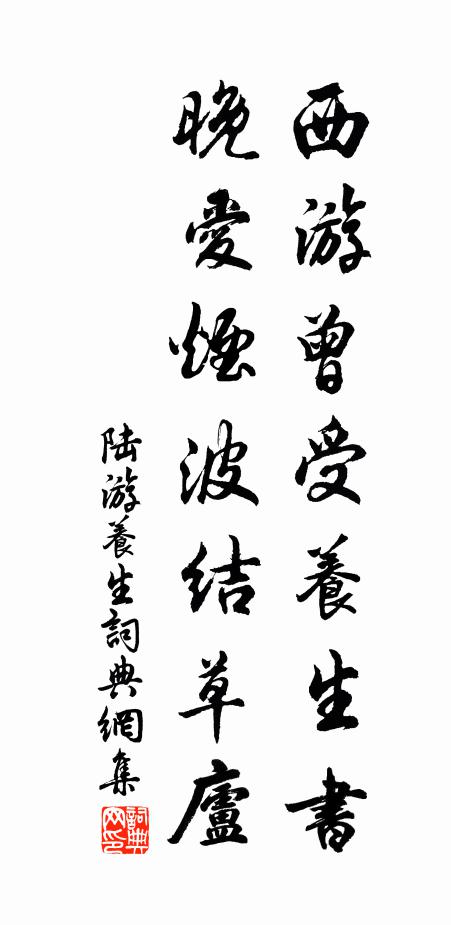 西游曾受養生書
晚愛煙波結草廬
陆游養生詞典網集
詞典网印